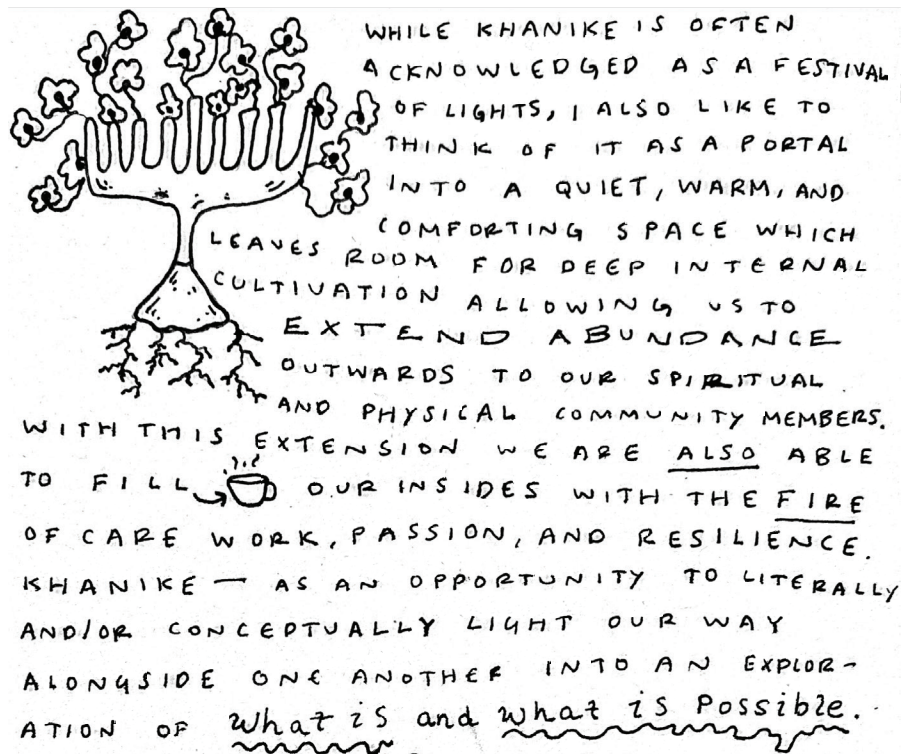 WHILE KHANIKE IS OFTEN
ACKNOWLEDGED AS A FESTIVAL
OF LIGHTS, I ALSO LIKE TO
THINK OF IT AS A PORTAL
INTO A QUIET, WARM, AND
COMFORTING SPACE WHICH
LEAVES ROOM FOR DEEP INTERNAL
CULTIVATION ALLOWING US TO
EXTEND ABUNDANCE
OUTWARDS TO OUR SPIRITUAL
AND PHYSICAL COMMUNITY MEMBERS.
WITH THIS EXTENSION WE ARE ALSO ABLE
TO FILL OUR INSIDES WITH THE FIRE
OF CARE WORK, PASSION, AND RESILIENCE.
KHANIKE — AS AN OPPORTUNITY TO LITERALLY
AND/OR CONCEPTUALLY LIGHT OUR WAY
ALONGSIDE ONE ANOTHER INTO AN EXPLOR-
ATION OF what is and what is possible.